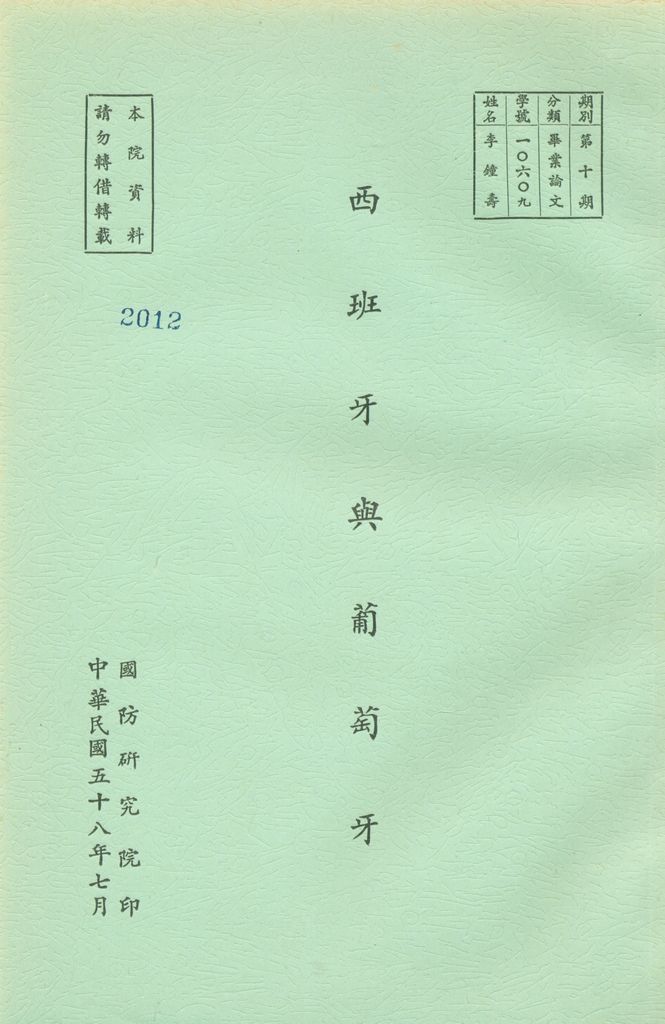 期別 第十期
分類 畢業論文
學號 一〇六〇九
姓名 李鐘壽
西班牙與葡萄牙
本院資料
請勿轉借轉載
2012
國防研究院印
中華民國五十八年七月